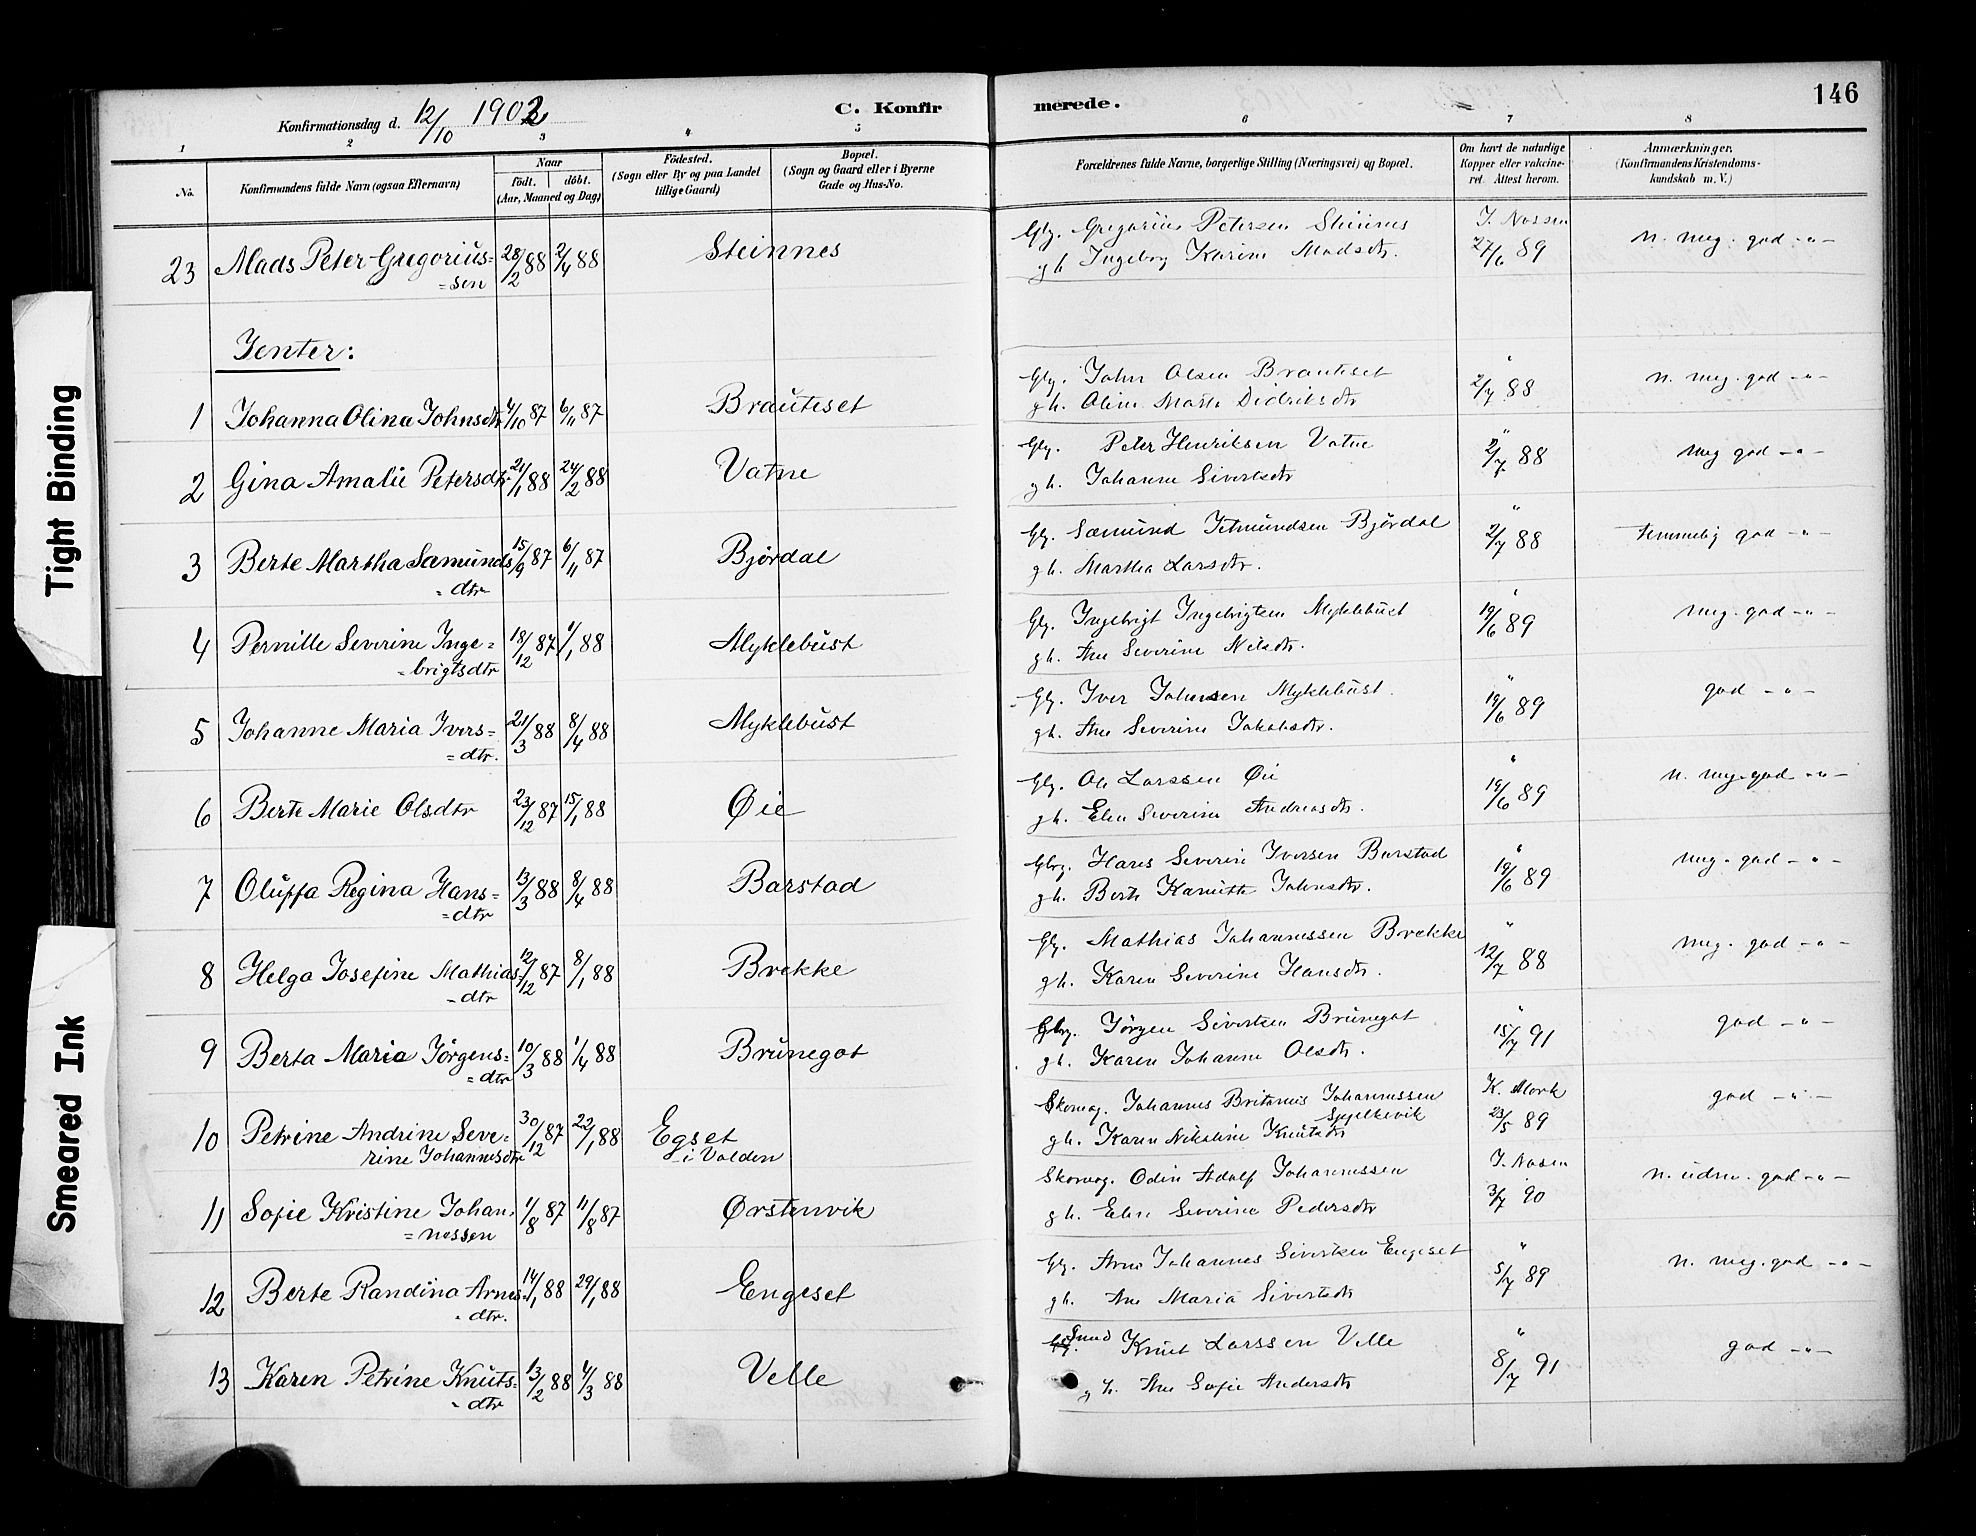 146
Konfirmationsdag d. 12/10 1902
C. Konfirmerede.
1 2 3 4 5 6 7 8
No.
Konfirmandens fulde Navn (ogsaa Efternavn)
Naar
født. døbt.
(Aar, Maaned og Dag)
Fødested.
(Sogn eller By og paa Landet
tillige Gaard)
Bopæl.
(Sogn og Gaard eller i Byerne
Gade og Hus-No.
Forældrenes fulde Navne, borgerlige Stilling (Næringsvei) og Bopæl.
Om havt de naturlige
Kopper eller vakcine-
ret. Attest herom.
Anmærkninger.
(Konfirmandens Kristendoms-
kundskab m. V.)
23 Mads Peter Gregorius= 28/2 88 2/4 88 Steinnes Gbr. Gregorius Petersen Steinnes J. Nossen
=sen gh. Ingeborg Karine Madsdtr. 27/6 89 n. meg. god -"-
Jenter:
1 Johanna Olina Johnsdtr 4/10 87 6/11 87 Brauteset Gbr. John Olsen Brauteset " n. meg. god -"-
gh. Oline Marte Didriksdtr 2/7 88
2 Gina Amalie Petersdtr 21/1 88 24/2 88 Vatne Gbr. Peter Henriksen Vatne " meg god -"-
gh. Johanne Sivertsdtr 2/7 88
3 Berte Martha Sæmunds 15/9 87 6/11 87 Bjørdal Gbr. Sæmund Jetmundsen Bjørdal " temmelig god -"-
=dtr gh. Martha Larsdtr. 2/7 88
4 Pernille Severine Inge= 18/12 87 1/1 88 Myklebust Gbr. Ingebrigt Ingebrigtsen Myklebust " meg. god -"-
=brigtsdtr gh. Ane Severine Nilsdtr. 19/6 89
5 Johanne Maria Ivers= 21/3 88 8/4 88 Myklebust Gbr. Iver Johnsen Myklebust. " god -"-
=dtr. gh. Ane Severine Jakobsdtr. 19/6 89
6 Berte Marie Olsdtr 23/12 87 15/1 88 Øie Gbr. Ole Larssen Øie " n. meg. god -"-
gh. Elen Severine Andreasdtr. 19/6 89
7 Oluffa Regina Hans= 13/3 88 8/4 88 Barstad Gbr. Hans Severin Iversen Barstad " meg. god -"-
=dtr gh. Berte Kanutte Johnsdtr. 19/6 89
8 Helga Josefine Mathias= 12/12 87 8/1 88 Brekke Gbr. Mathias Johannessen Brekke " meg. god -"-
=dtr gh. Karen Severine Hansdtr. 12/7 88
9 Berta Maria Jørgens= 10/3 88 1/4 88 Brunegot Gbr. Jørgen Sivertsen Brunegot " god -"-
=dtr gh. Karen Johanne Olsdtr. 15/7 91
10 Petrine Andrine Seve= 30/12 87 22/1 88 Egset Skomag. Johannes Johannessen K. Mork god -"-
rine Johannesdtr i Volden gh. Karen Nikoline Knutsdtr Spjelkevik 23/5 89
11 Sofie Kristine Johan= 1/8 87 11/8 87 Ørstenvik Skomag. Odin Adolf Johannessen J. Nosen n. udm. god -"-
=nessen gh. Elen Severine Pedersdtr 3/7 90
12 Berte Randina Arnes= 14/1 88 29/1 88 Engeset Gbr. Arne Johannes Sivertsen Engeset " n. meg. god -"-
=dtr. gh. Ane Maria Sivertsdtr 5/7 89
13 Karen Petrine Knuts= 13/2 88 4/3 88 Velle Knut Larssen Velle " god -"-
=dtr gh. Ane Sofie Andersdtr 8/7 91
Tight Binding
Smeared Ink